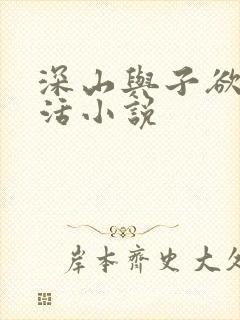 深山與子欲
活小說
岸本齊史大久